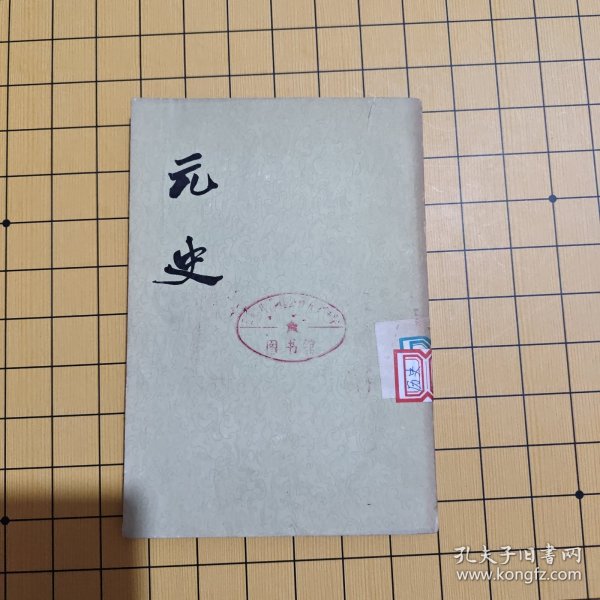 元
史
图书馆
历史
孔夫子旧书网
www.kongfz.com